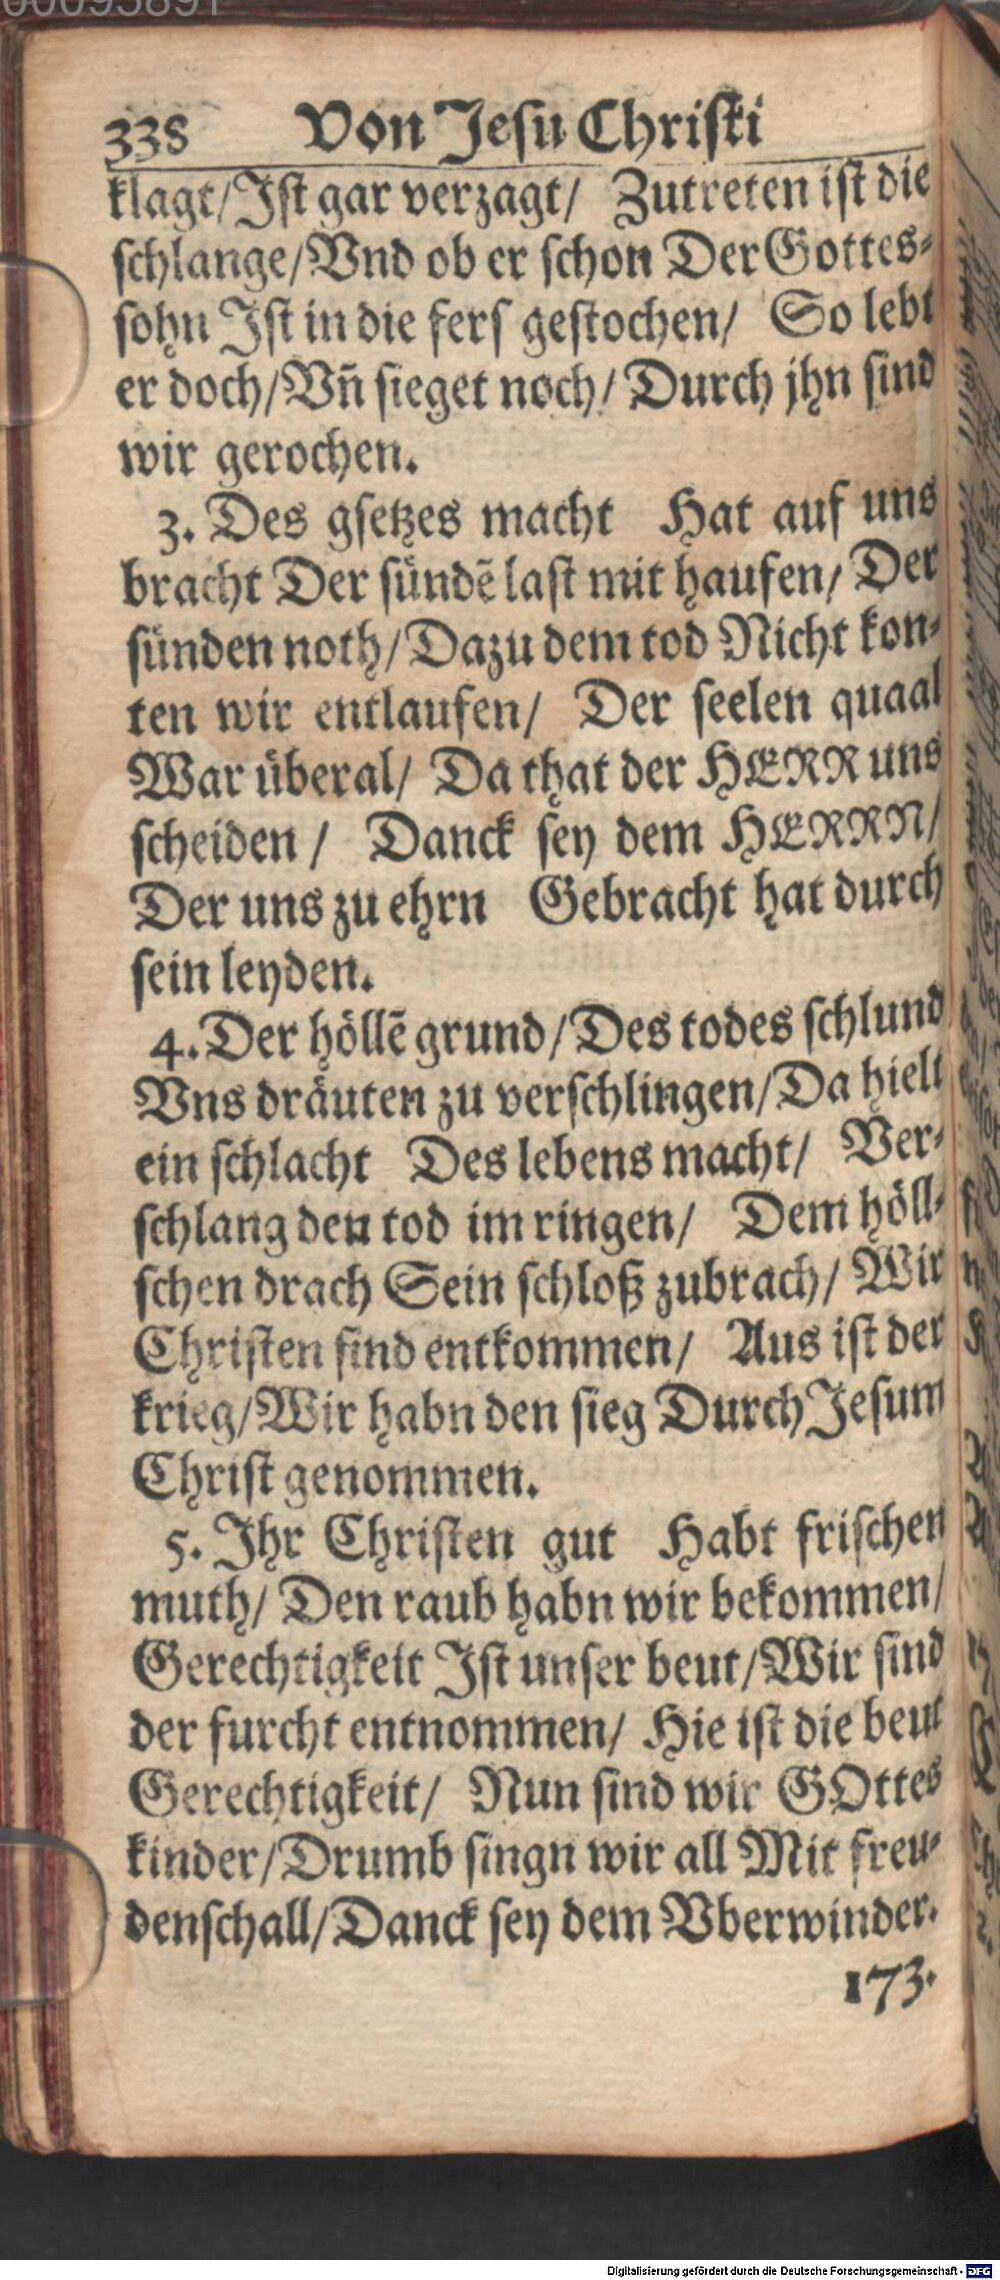 00095891
338 Von Jesu Christi
klagt/Ist gar verzagt/ Zutreten ist die
schlange/Vnd ob er schon Der Gottes-
sohn Ist in die fers gestochen/ So lebt
er doch/Vñ sieget noch/Durch jhn sind
wir gerochen.
3. Des gsetzes macht Hat auf uns
bracht Der sündē last mit haufen/ Der
sünden noth/Dazu dem tod Nicht kon-
ten wir entlaufen/ Der seelen quaal
War überal/ Da that der HERR uns
scheiden/ Danck sey dem HERRN/
Der uns zu ehrn Gebracht hat durch
sein leyden.
4. Der höllē grund/Des todes schlund
Vns dräuten zu verschlingen/Da hielt
ein schlacht Des lebens macht/ Ver-
schlang den tod im ringen/ Dem höll-
schen drach Sein schloß zubrach/ Wir
Christen sind entkommen/ Aus ist der
krieg/Wir habn den sieg Durch Jesum
Christ genommen.
5. Ihr Christen gut Habt frischen
muth/ Den raub habn wir bekommen/
Gerechtigkeit Ist unser beut/Wir sind
der furcht entnommen/ Hie ist die beut
Gerechtigkeit/ Nun sind wir GOttes
kinder/Drumb singn wir all Mit freu-
denschall/Danck sey dem Vberwinder.
173.
Digitalisierung gefördert durch die Deutsche Forschungsgemeinschaft - DFG